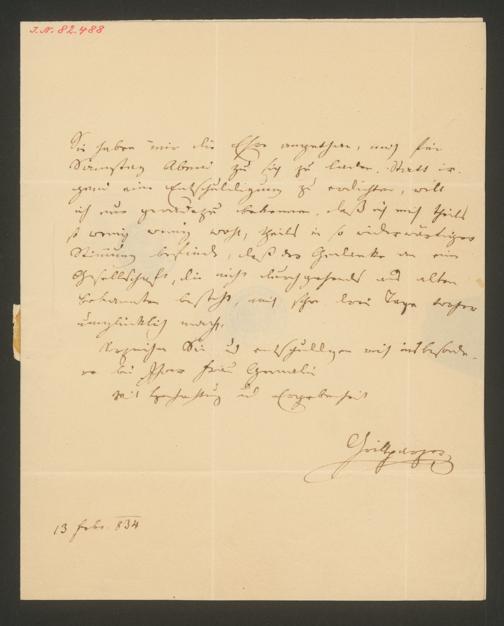 I.N. 82.488
Sie haben mir die Ehre angethan, mich für
Samstag Abend zu sich zu laden. Statt ir-
gend eine Entschuldigung zu erdichten, will
ich nur geradezu bekennen, daß ich mich theils
so wenig wohl, theils in so widerwärtiger
Stimmung befinde, daß der Gedanke an eine
Gesellschaft, die nicht durchgehends aus alten
Bekannten besteht, mich schon drei Tage vorher
unglücklich macht.
Verzeihen Sie und entschuldigen mich insbesonde-
re bei Ihrer Frau Gemalin
Mit Hochachtung und Ergebenheit
Grillparzer
13 Febr. 834